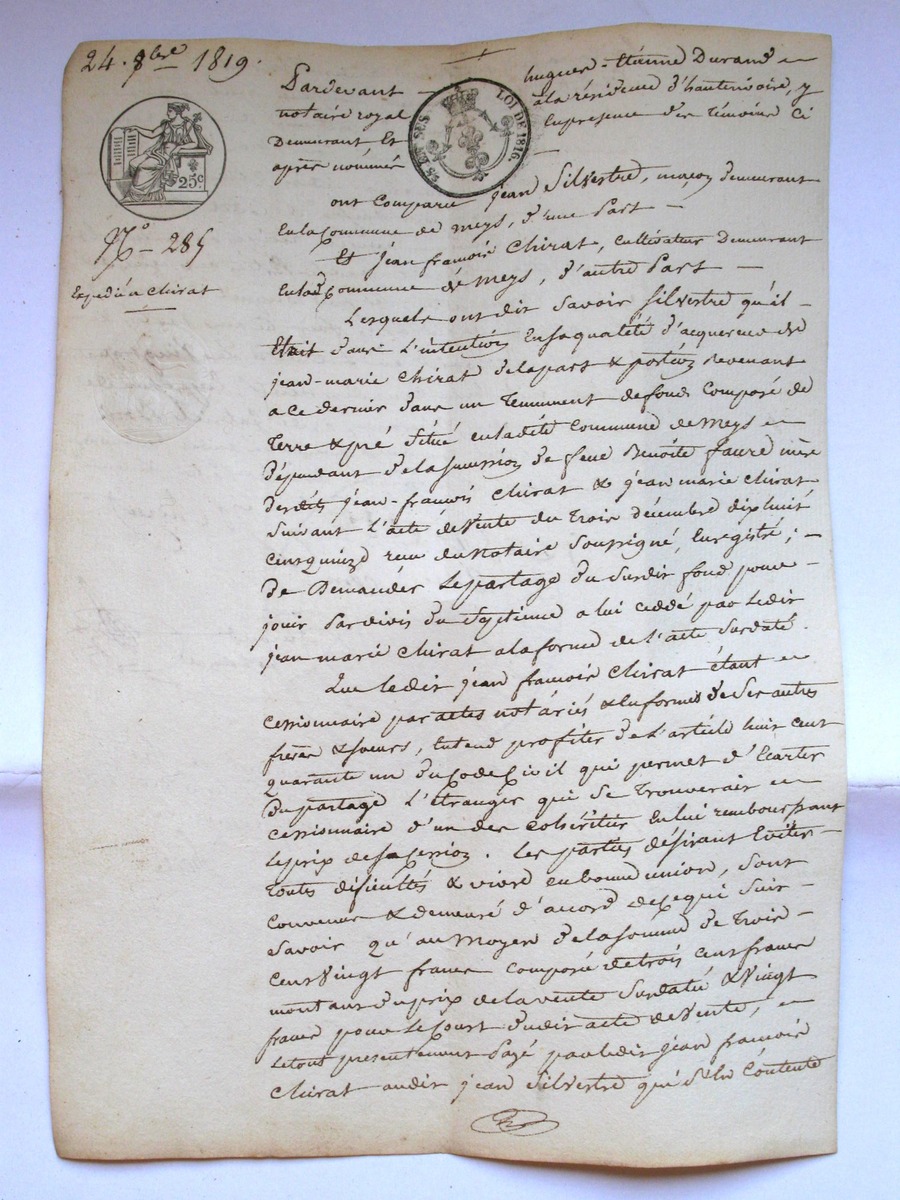 24. 8bre 1819.
Pardevant hugues-étienne Durand
notaire royal à la résidence d'hauterivoire, y
Demeurant Et En presence des Témoins Ci
après nommés
LOI DE 1816.
25c
No - 285
Expédié a Chirat
ont Comparu jean Silvestre, maçon demeurant
En la Commune de meys, d'une Part -
Et jean françois Chirat, Cultivateur Demeurant
En lad. Commune de Meys, d'autre Part -
Lesquels ont dit Savoir Silvestre qu'il -
Etait dans L'intention En sa qualité d'acquereur de
jean-marie Chirat de la part & portion Revenant
a ce dernier dans un Tennement de fond Composé de
Terre & pré Situé en ladite Commune de Meys
Dépendant de la Succession de feue Benoîte faure mère
desdits jean-françois Chirat & jean marie Chirat
Suivant L'acte de Vente du Trois décembre dix huit
Cens quinze recu du Notaire Soussigné, Enregistré ; -
De Demander Le partage du Susdit fond pour -
jouir Par divis du Septieme a lui cédé par Ledit
jean marie Chirat a la forme de L'acte Susdaté.
Que ledit jean françois Chirat étant
Cessionnaire par actes notariés & En forme de Ses autres
frères & soeurs, Entend profiter de L'article huit Cent
quarante un du Code Civil qui permet d'Ecarter
Du partage L'Etranger qui Se Trouverait
Cessionnaire d'un des Cohéritiers En lui remboursant
Le prix de Sa Cession. Les parties désirant Eviter -
Toutes dificultés & vivre en bonne union, Sont
Convenus & demeuré d'accord de Ce qui Suit -
Savoir qu'au Moyen de la Somme de Trois -
Cens Vingt francs Composée de trois Cens francs
montant du prix de la vente Susdatée & Vingt
francs pour Le Cout dudit acte de Vente,
Le tout presentement Payé par ledit jean françois
Chirat audit jean Silvestre qui S'En Contente